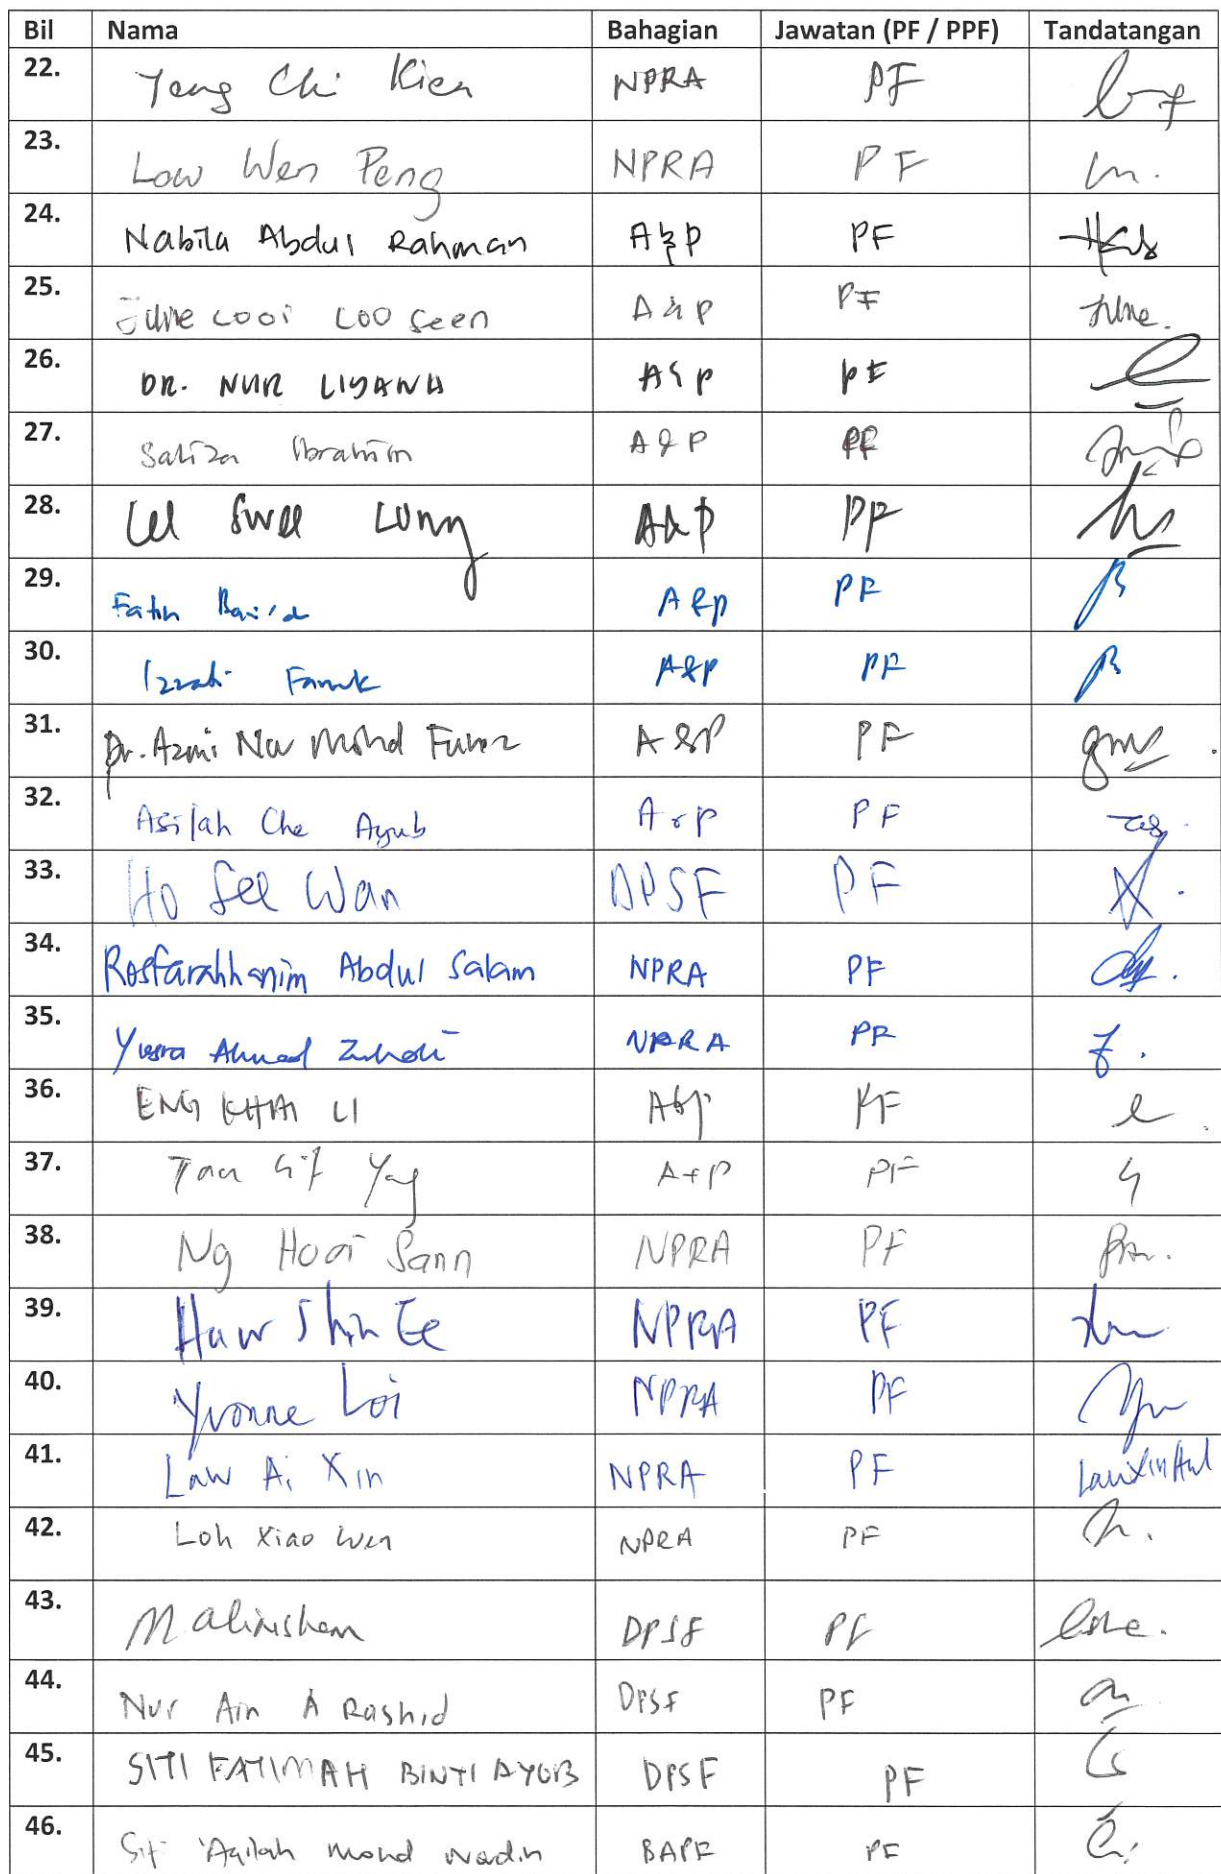 Bil Nama Bahagian Jawatan (PF / PPF) Tandatangan
22. Yang Chi Kien NPRA PF
23. Low Wen Peng NPRA PF
24. Nabila Abdul Rahman A&P PF
25. June Looi Loo Seen A&P PF June.
26. DR. NUR LIYANA A&P PF
27. Saliza Ibrahim A&P PF
28. Lel Swee Lung A&P PF
29. Fatin A&P PF
30. Izzati Faruk A&P PF
31. Dr. Azmi Nor Mohd A&P PF
32. Asilah Che Ayub A&P PF
33. Ho See Wan DPSF PF
34. Rosfarahhanim Abdul Salam NPRA PF
35. Yusra Ahmad NPRA PF
36. ENG KHAI LI A&P PF
37. Tan A+P PF
38. Ng Hooi Sann NPRA PF
39. Haw Shin Ee NPRA PF
40. Yvonne Loi NPRA PF
41. Law Ai Xin NPRA PF
42. Loh Xiao Wen NPRA PF
43. Malinisham DPSF PF
44. Nur Ain A Rashid DPSF PF
45. SITI FATIMAH BINTI AYUB DPSF PF
46. Siti 'Aqilah Mohd Nadin BAPF PF